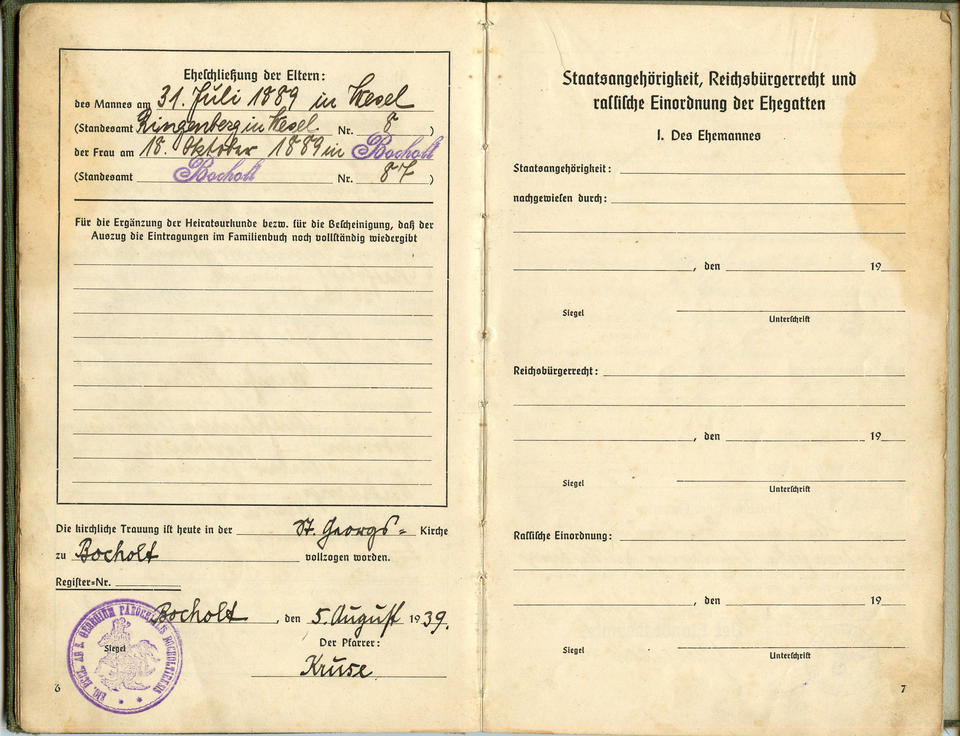 Eheschließung der Eltern:
des Mannes am 31. Juli 1889 in Wesel
(Standesamt Ringenberg in Wesel Nr. 8 )
der Frau am 18. Oktober 1889 in Bocholt
(Standesamt Bocholt Nr. 87 )
Für die Ergänzung der Heiratsurkunde bezw. für die Bescheinigung, daß der
Auszug die Eintragungen im Familienbuch noch vollständig wiedergibt
Die kirchliche Trauung ist heute in der St. Georgs= Kirche
zu Bocholt vollzogen worden.
Register=Nr.
Bocholt, den 5. August 1939.
Siegel
Der Pfarrer:
Kruse
6
Staatsangehörigkeit, Reichsbürgerrecht und
rassische Einordnung der Ehegatten
I. Des Ehemannes
Staatsangehörigkeit:
nachgewiesen durch:
, den 19
Siegel Unterschrift
Reichsbürgerrecht:
, den 19
Siegel Unterschrift
Rassische Einordnung:
, den 19
Siegel Unterschrift
7